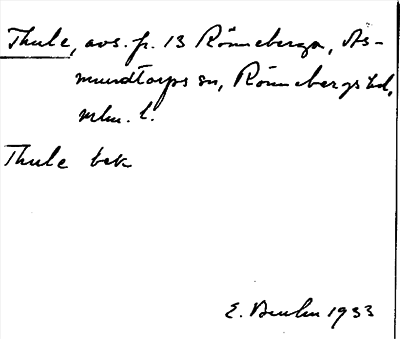 Thule, avs. fr. 13 Rönneberga, As-
mundtorps sn, Rönnebergs hd,
mlm. l.
Thule bek
E. 1933